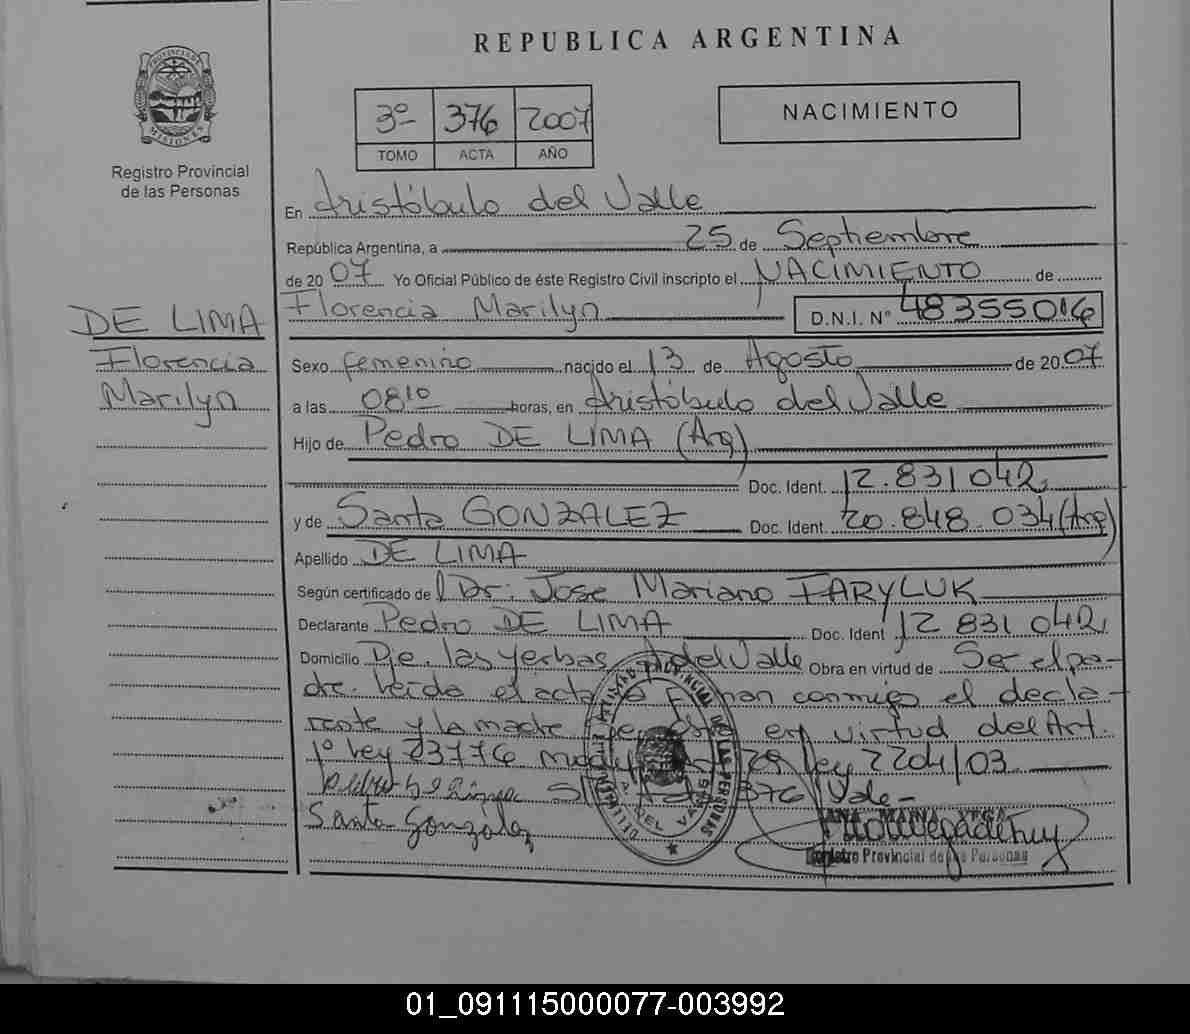 REPUBLICA ARGENTINA
PROVINCIA DE MISIONES
Registro Provincial
de las Personas
3º 376 2007
TOMO ACTA AÑO
NACIMIENTO
En Aristóbulo del Valle
República Argentina, a 25 de Septiembre
de 2007 Yo Oficial Público de éste Registro Civil inscripto el NACIMIENTO de
Florencia Marilyn D.N.I. Nº 48355016
DE LIMA
Florencia
Marilyn
Sexo femenino nacido el 13 de Agosto de 2007
a las 08¹⁰ horas, en Aristóbulo del Valle
Hijo de Pedro DE LIMA (Arg)
Doc. Ident. 12.831042
y de Santa GONZALEZ Doc. Ident. 20.848.034 (Arg)
Apellido DE LIMA
Según certificado de Dr. Jose Mariano FARYLUK
Declarante Pedro DE LIMA Doc. Ident 12 831 042
Domicilio Pje. las yerbas A del Valle Obra en virtud de Ser el pa-
dre. Leída el acta conmigo el decla-
rante y la madre en virtud del Art.
1º ley 23776 29 ley 2204/03
376 Vale-
Santa Gonzalez
Registro Provincial de las Personas
01_091115000077-003992